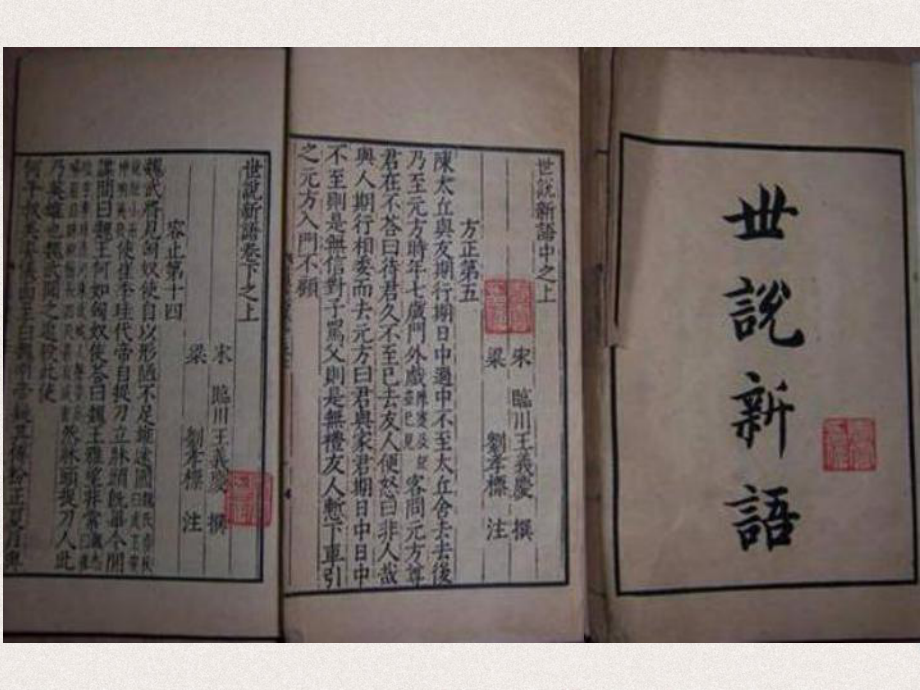 丗說新語
世說新語中之上
宋 臨川王義慶 撰
梁 劉孝標 注
方正第五
陳太丘與友期行期日中過中不至太丘舍去去後
乃至元方時年七歲門外戲客問元方尊
君在不答曰待君久不至已去友人便怒曰非人哉
與人期行相委而去元方曰君與家君期日中日中
不至則是無信對子罵父則是無禮友人慙下車引
之元方入門不顧
世說新語卷下之上
宋 臨川王義慶 撰
梁 劉孝標 注
容止第十四
魏武將見匈奴使自以形陋不足雄遠國
使崔季珪代帝自捉刀立牀頭旣畢令間
諜問曰魏王何如匈奴使答曰魏王雅望非常
然牀頭捉刀人此
乃英雄也魏武聞之追殺此使
何平叔美姿儀面至白魏明帝疑其傅粉正夏月與